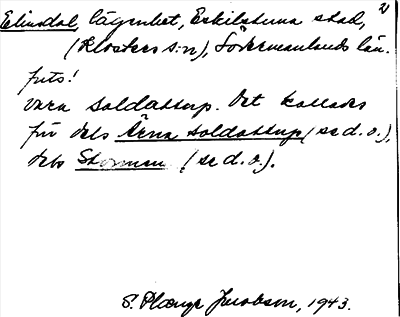 Elinsdal, lägenhet, Eskilstuna stad, 2)
(Klosters s:n), Södermanlands län.
förts!
vara soldattorp. Det kallades
för dels Ärna soldattorp (se d. o.),
dels Stormen (se d. o.).
S. Plænge Jacobson, 1943.